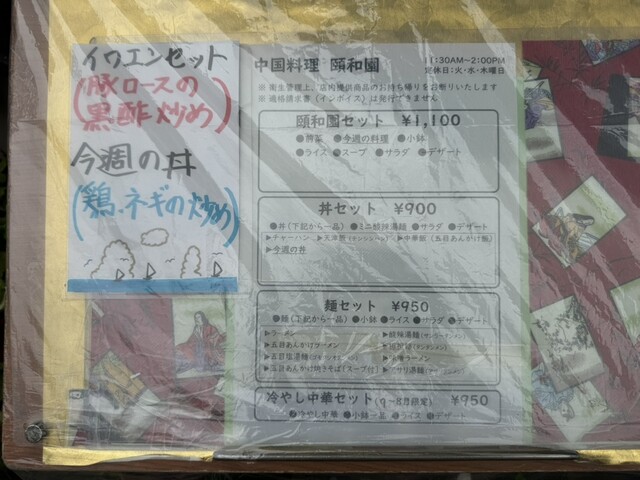 イワエンセット
(豚ロースの
黒酢炒め)
今週の丼
(鶏、ネギの炒め)
中国料理 頤和園
11:30AM~2:00PM
定休日:火・水・木曜日
※ 衛生管理上、店内提供商品のお持ち帰りをお断りいたします
※ 適格請求書(インボイス)は発行できません
頤和園セット ¥1,100
●前菜 ●今週の料理 ●小鉢
●ライス ●スープ ●サラダ ●デザート
丼セット ¥900
●丼(下記から一品) ●ミニ酸辣湯麺 ●サラダ ●デザート
▶チャーハン ▶天津飯 ▶中華飯(五目あんかけ飯)
▶今週の丼
麺セット ¥950
●麺(下記から一品) ●小鉢 ●ライス ●サラダ ●デザート
▶ラーメン ▶酸辣湯麺
▶五目あんかけラーメン
▶五目塩湯麺
▶五目あんかけ焼きそば(スープ付)
冷やし中華セット(9~8月限定) ¥950
●冷やし中華 ●小鉢一品 ●ライス ●デザート